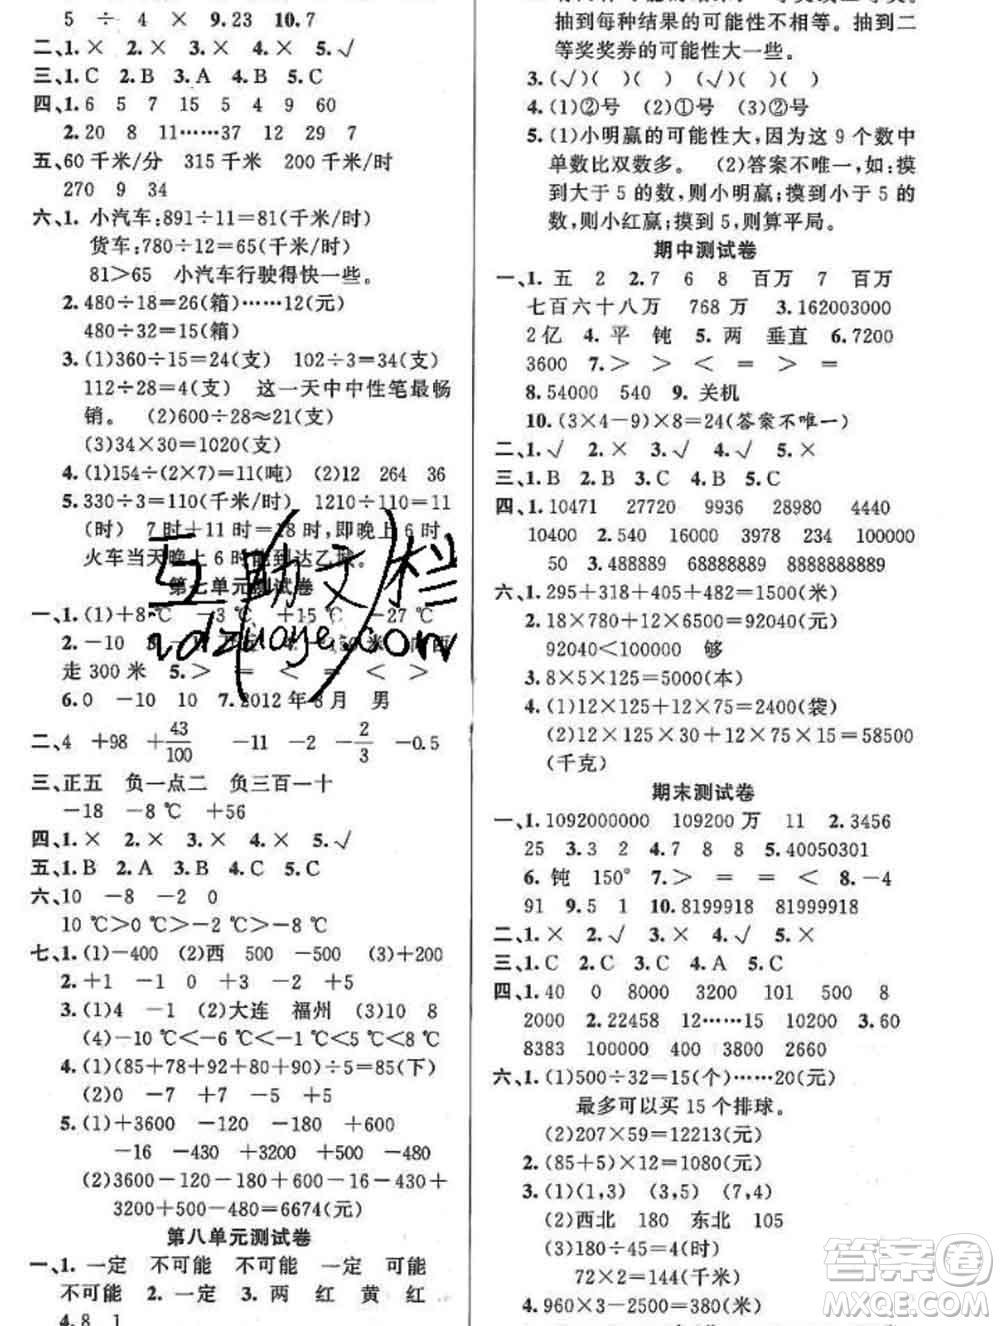 5 ÷ 4 × 9.23 10.7
二、1.× 2.× 3.× 4.× 5.√
三、1.C 2.B 3.A 4.B 5.C
四、1.6 5 7 15 5 4 9 60
2.20 8 11……37 12 29 7
五、60千米/分 315千米 200千米/时
270 9 34
六、1.小汽车:891÷11=81(千米/时)
货车:780÷12=65(千米/时)
81>65 小汽车行驶得快一些。
2.480÷18=26(箱)……12(元)
480÷32=15(箱)
3.(1)360÷15=24(支) 102÷3=34(支)
112÷28=4(支) 这一天中中性笔最畅
销。 (2)600÷28≈21(支)
(3)34×30=1020(支)
4.(1)154÷(2×7)=11(吨) (2)12 264 36
5.330÷3=110(千米/时) 1210÷110=11
(时) 7时+11时=18时,即晚上6时,
火车当天晚上6时能到达乙
第七单元测试卷
一、1.(1)+8℃ -3℃ +15℃ -27℃
2.-10
走300米 5.> = = < >
6.0 -10 10 7.2012年8月 男
二、4 +98 +43/100 -11 -2 -2/3 -0.5
三、正五 负一点二 负三百一十
-18 -8℃ +56
四、1.× 2.× 3.× 4.× 5.√
五、1.B 2.A 3.B 4.C 5.C
六、10 -8 -2 0
10℃>0℃>-2℃>-8℃
七、1.(1)-400 (2)西 500 -500 (3)+200
2.+1 -1 0 -2 +5
3.(1)4 -1 (2)大连 福州 (3)10 8
(4)-10℃<-6℃<-1℃<5℃<8℃
4.(1)(85+78+92+80+90)÷5=85(下)
(2)0 -7 +7 -5 +5
5.(1)+3600 -120 -180 +600
-16 -430 +3200 +500 -480
(2)3600-120-180+600-16-430+
3200+500-480=6674(元)
第八单元测试卷
一、1.一定 不可能 不可能 一定 可能
不可能 2.一定 3.两 红 黄 红
4.8 1
抽到每种结果的可能性不相等。抽到二
等奖奖券的可能性大一些。
3.(√)( )( ) (√)( )( )
4.(1)②号 (2)①号 (3)②号
5.(1)小明赢的可能性大,因为这9个数中
单数比双数多。 (2)答案不唯一,如:摸
到大于5的数,则小明赢;摸到小于5的
数,则小红赢;摸到5,则算平局。
期中测试卷
一、1.五 2 2.7 6 8 百万 7 百万
七百六十八万 768万 3.162003000
2亿 4.平 钝 5.两 垂直 6.7200
3600 7.> > < = > =
8.54000 540 9.关机
10.(3×4-9)×8=24(答案不唯一)
二、1.√ 2.× 3.√ 4.√ 5.×
三、1.B 2.B 3.C 4.B 5.A
四、1.10471 27720 9936 28980 4440
10400 2.50 16000 3978 234 100000
50 3.488889 68888889 8888888889
六、1.295+318+405+482=1500(米)
2.18×780+12×6500=92040(元)
92040<100000 够
3.8×5×125=5000(本)
4.(1)12×125+12×75=2400(袋)
(2)12×125×30+12×75×15=58500
(千克)
期末测试卷
一、1.1092000000 109200万 11 2.3456
25 3.3 2 4.7 8 8 5.40050301
6.钝 150° 7.> = = < 8.-4
91 9.5 1 10.8199918 81999918
二、1.× 2.√ 3.× 4.√ 5.×
三、1.C 2.C 3.C 4.A 5.C
四、1.40 0 8000 3200 101 500 8
2000 2.22458 12……15 10200 3.60
8383 100000 400 3800 2660
六、1.(1)500÷32=15(个)……20(元)
最多可以买15个排球。
(2)207×59=12213(元)
2.(85+5)×12=1080(元)
3.(1)(1,3) (3,5) (7,4)
(2)西北 180 东北 105
(3)180÷45=4(时)
72×2=144(千米)
4.960×3-2500=380(米)
互助文档
答案圈
MXQE.COM